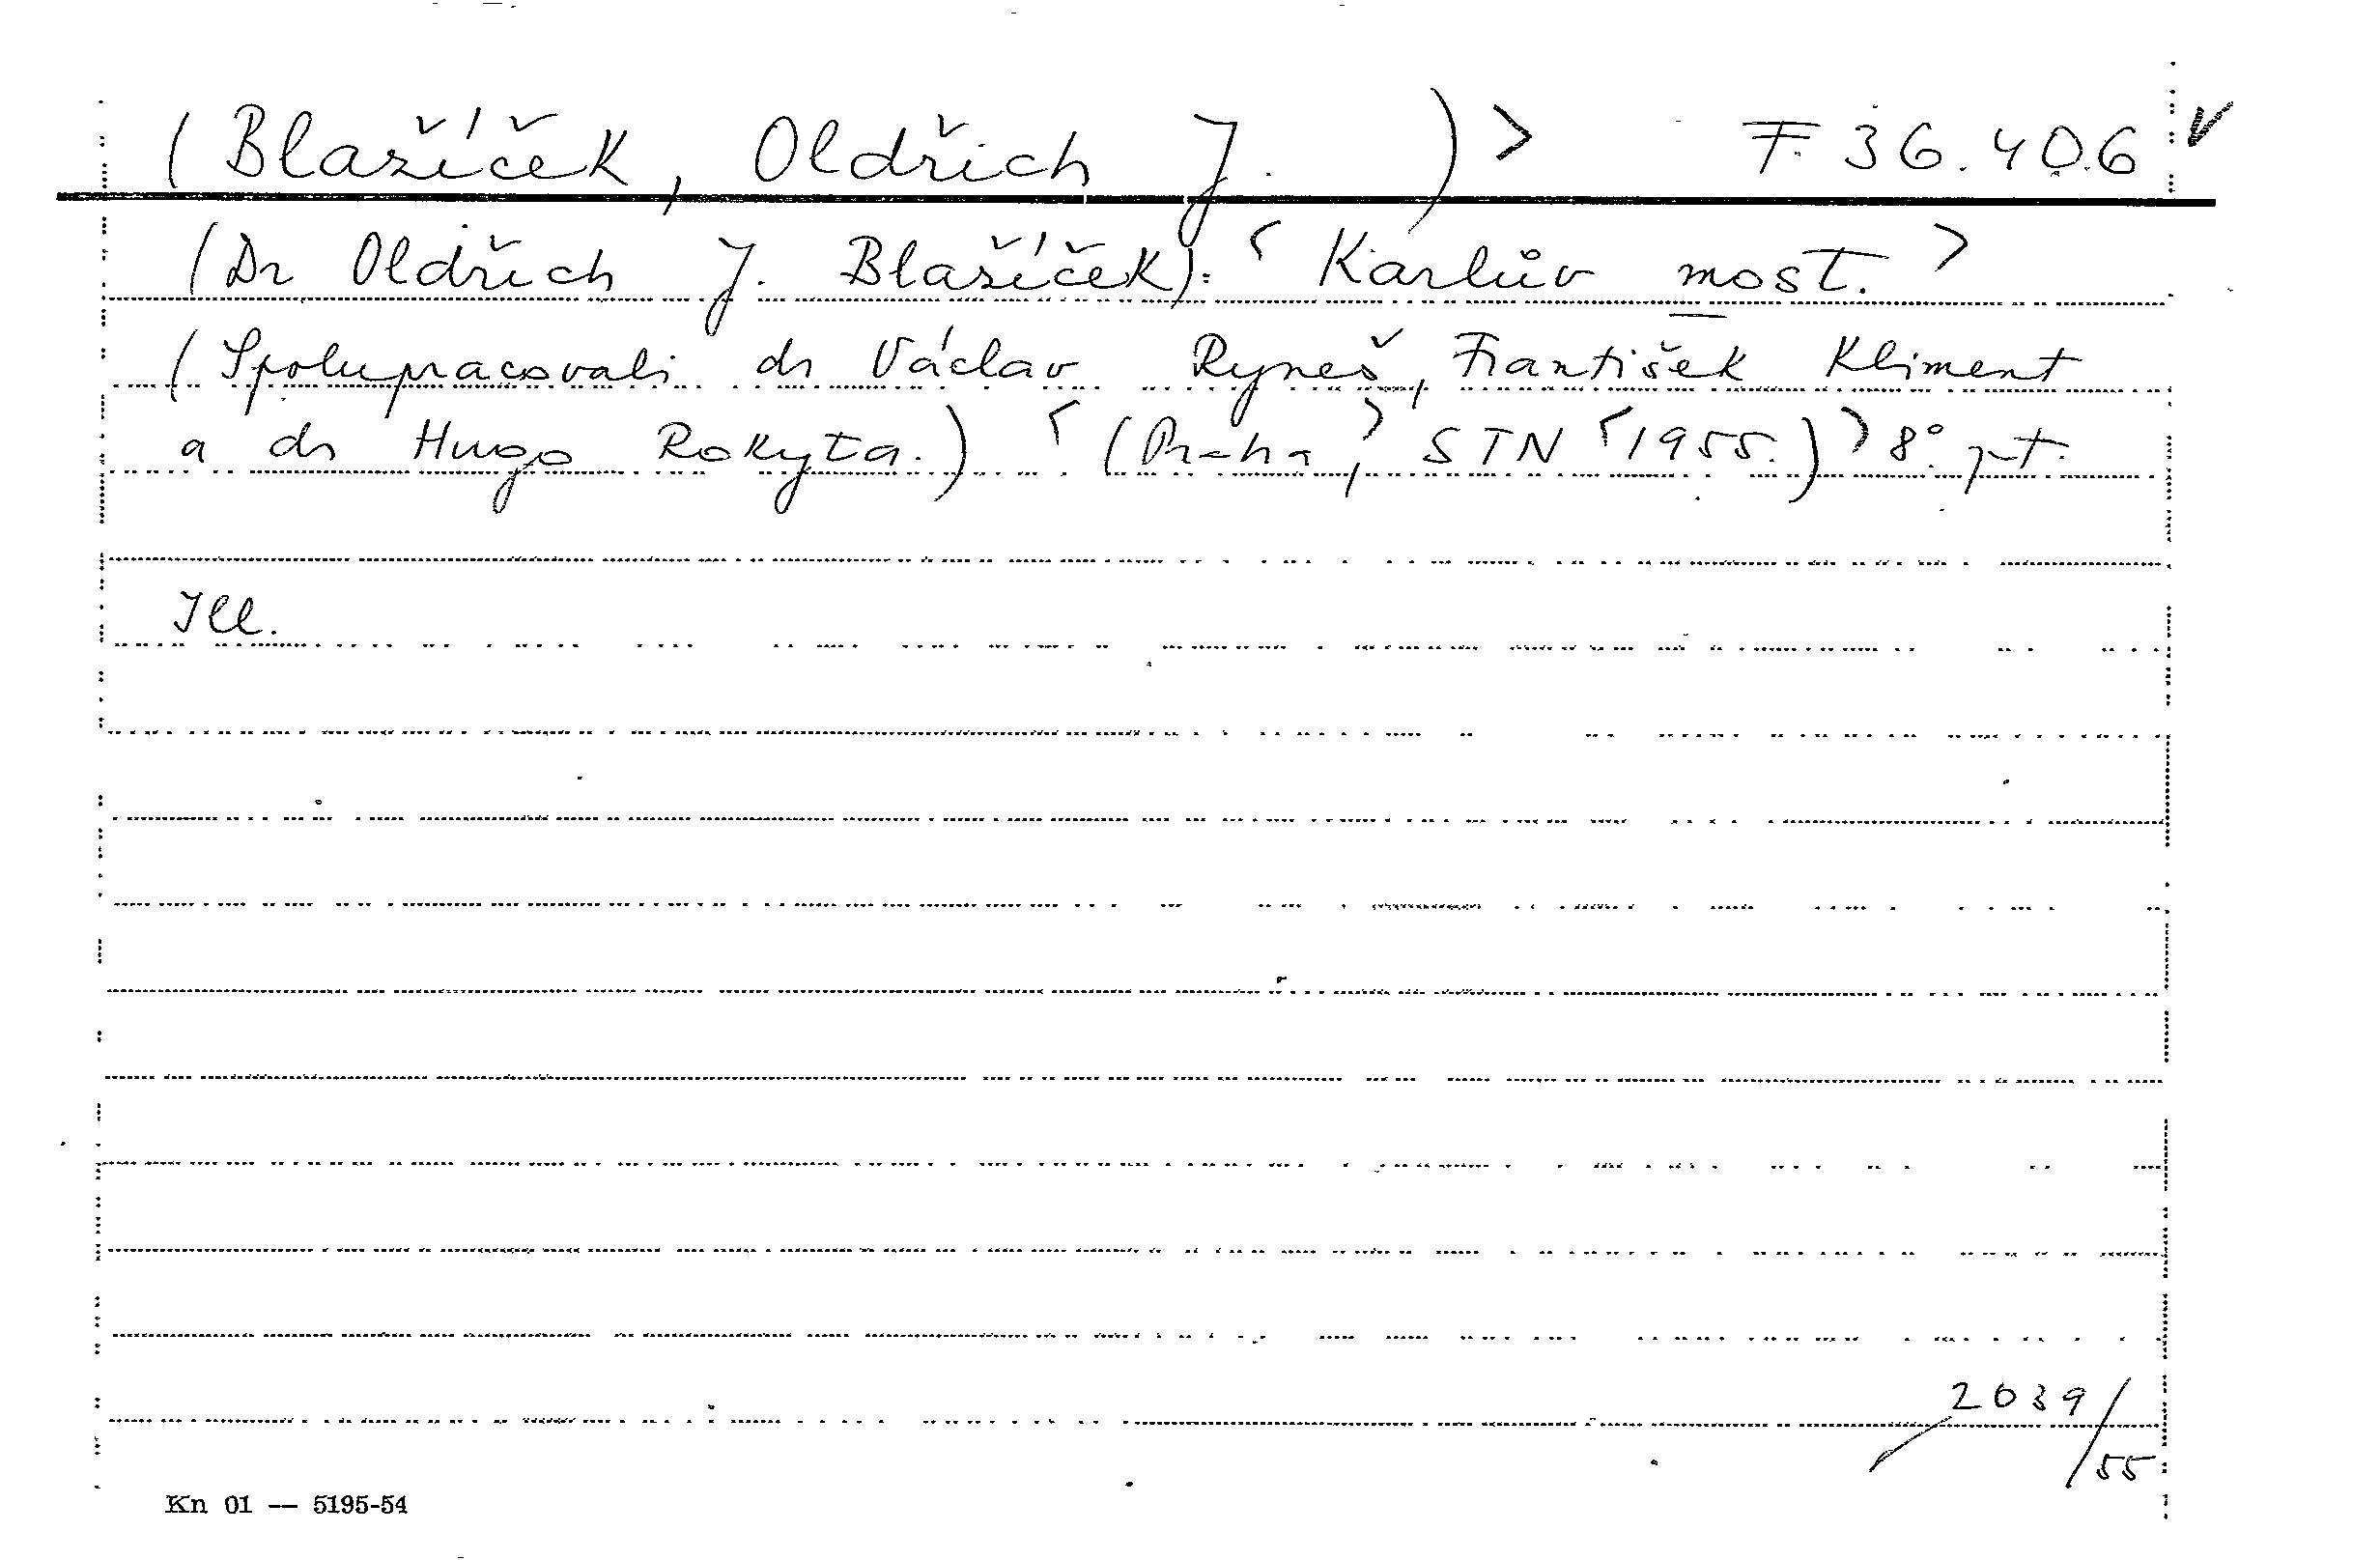 (Blažíček, Oldřich J. )> F 36.406 v
(Dr Oldřich J. Blažíček): < Karlův most. >
(Spolupracovali dr Václav Ryneš, František Kliment
a dr Hugo Rokyta.) < (Praha, > STN < 1955.) > 8°. p-t.
Ill.
2039/
55
Kn 01 — 5195-54